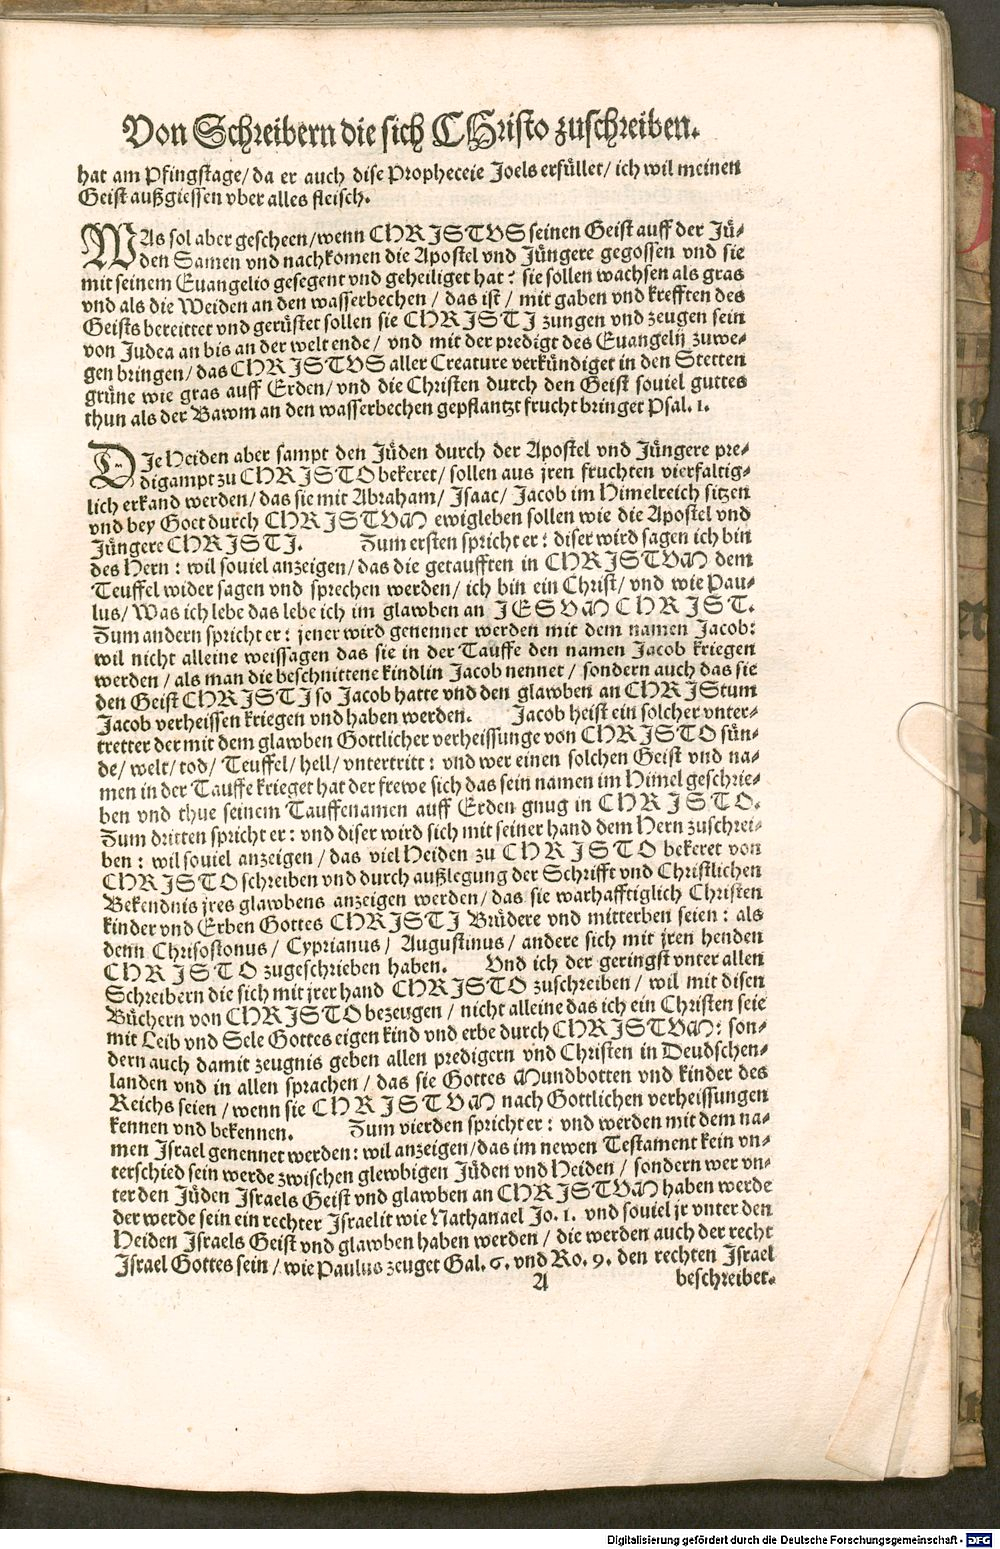 Von Schreibern die sich CHristo zuschreiben.
hat am Pfingstage/ da er auch dise Propheceie Joels erfüllet/ ich wil meinen
Geist außgiessen vber alles fleisch.
WAs sol aber gescheen/ wenn CHRISTVS seinen Geist auff der Jü-
den Samen vnd nachkomen die Apostel vnd Jüngere gegossen vnd sie
mit seinem Euangelio gesegent vnd geheiliget hat: sie sollen wachsen als gras
vnd als die Weiden an den wasserbechen/ das ist/ mit gaben vnd krefften des
Geists bereittet vnd gerüstet sollen sie CHRISTI zungen vnd zeugen sein
von Judea an bis an der welt ende/ vnd mit der predigt des Euangelij zuwe-
gen bringen/ das CHRISTVS aller Creature verkündiget in den Stetten
grüne wie gras auff Erden/ vnd die Christen durch den Geist souiel guttes
thun als der Bawm an den wasserbechen gepflantzt frucht bringet Psal. 1.
DJe Heiden aber sampt den Jüden durch der Apostel vnd Jüngere pre-
digampt zu CHRISTO bekeret/ sollen aus jren fruchten vierfaltig-
lich erkand werden/ das sie mit Abraham/ Isaac/ Jacob im Himelreich sitzen
vnd bey Gott durch CHRISTVM ewigleben sollen wie die Apostel vnd
Jüngere CHRISTI. Zum ersten spricht er: diser wird sagen ich bin
des Hern: wil souiel anzeigen/ das die getaufften in CHRISTVM dem
Teuffel wider sagen vnd sprechen werden/ ich bin ein Christ/ vnd wie Pau-
lus/ Was ich lebe das lebe ich im glawben an JESVM CHRIST.
Zum andern spricht er: jener wird genennet werden mit dem namen Jacob:
wil nicht alleine weissagen das sie in der Tauffe den namen Jacob kriegen
werden/ als man die beschnittene kindlin Jacob nennet/ sondern auch das sie
den Geist CHRISTI so Jacob hatte vnd den glawben an CHRIStum
Jacob verheissen kriegen vnd haben werden. Jacob heist ein solcher vnter-
tretter der mit dem glawben Gottlicher verheissunge von CHRISTO sün-
de/ welt/ tod/ Teuffel/ hell/ vntertritt: vnd wer einen solchen Geist vnd na-
men in der Tauffe krieget hat der frewe sich das sein namen im Himel geschrie-
ben vnd thue seinem Tauffenamen auff Erden gnug in CHRISTO.
Zum dritten spricht er: vnd diser wird sich mit seiner hand dem Hern zuschrei-
ben: wil souiel anzeigen/ das viel Heiden zu CHRISTO bekeret von
CHRISTO schreiben vnd durch außlegung der Schrifft vnd Christlichen
Bekendnis jres glawbens anzeigen werden/ das sie warhafftiglich Christen
kinder vnd Erben Gottes CHRISTI Brüdere vnd mitterben seien: als
denn Chrisostonus/ Cyprianus/ Augustinus/ andere sich mit jren henden
CHRISTO zugeschrieben haben. Vnd ich der geringst vnter allen
Schreibern die sich mit jrer hand CHRISTO zuschreiben/ wil mit disen
Büchern von CHRISTO bezeugen/ nicht alleine das ich ein Christen seie
mit Leib vnd Sele Gottes eigen kind vnd erbe durch CHRISTVM: son-
dern auch damit zeugnis geben allen predigern vnd Christen in Deudschen-
landen vnd in allen sprachen/ das sie Gottes Mundbotten vnd kinder des
Reichs seien/ wenn sie CHRISTVM nach Gottlichen verheissungen
kennen vnd bekennen. Zum vierden spricht er: vnd werden mit dem na-
men Israel genennet werden: wil anzeigen/ das im newen Testament kein vn-
terschied sein werde zwischen glewbigen Jüden vnd Heiden/ sondern wer vn-
ter den Jüden Israels Geist vnd glawben an CHRISTVM haben werde
der werde sein ein rechter Israelit wie Nathanael Jo. 1. vnd souiel jr vnter den
Heiden Israels Geist vnd glawben haben werden/ die werden auch der recht
Israel Gottes sein/ wie Paulus zeuget Gal. 6. vnd Ro. 9. den rechten Israel
A beschreibet.
Digitalisierung gefördert durch die Deutsche Forschungsgemeinschaft - DFG